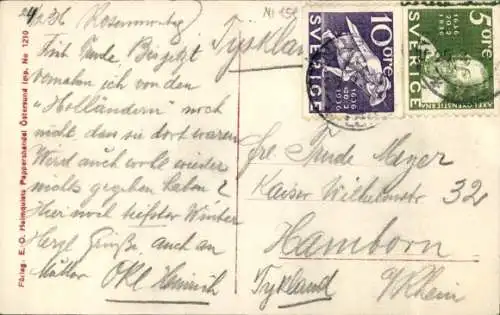 24/2 36 Rosenmontag
Früh Trude, Birgitt
vernahm ich von den
"Holländern" noch
nicht dass sie dort waren
Wird auch wohl wieder
nichts gegeben haben?
Hier noch tiefster Winter
Herzl Grüße auch an
Mutter Onkel Heinrich
Förlag: E. O. Holmquists Pappershandel Östersund Imp. No 1210
Tyskland
10 ÖRE
SVERIGE
1636 1936
5 ÖRE
SVERIGE
1636 1936
AXEL OXENSTIERNA
Frl. Trude Meyer
Kaiser Wilhelmstr 32
Hamborn
Tyskland a/Rhein